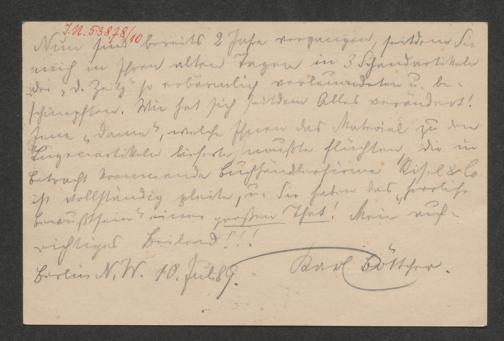 I.N. 53878/10
Nun sind bereits 2 Jahre vergangen, seitdem Sie
mich in Ihren alten Tagen in 3 Schandartikeln
der „d. Zeitg" so erbärmlich verleumdeten u. be-
schimpften. Wie hat sich seitdem Alles verändert!
Jene „Dame", welche Ihnen das Material zu den
Lügenartikeln lieferte, mußte flüchten, die in
Betracht kommende Buchhändlerfirma Risel & Co
ist vollständig pleite, u. Sie haben das „herrliche
Bewußtsein" einer großen That! Mein auf-
richtiges Beileid!!!
Berlin N.W. 10. Juli 89. Karl Böttcher.